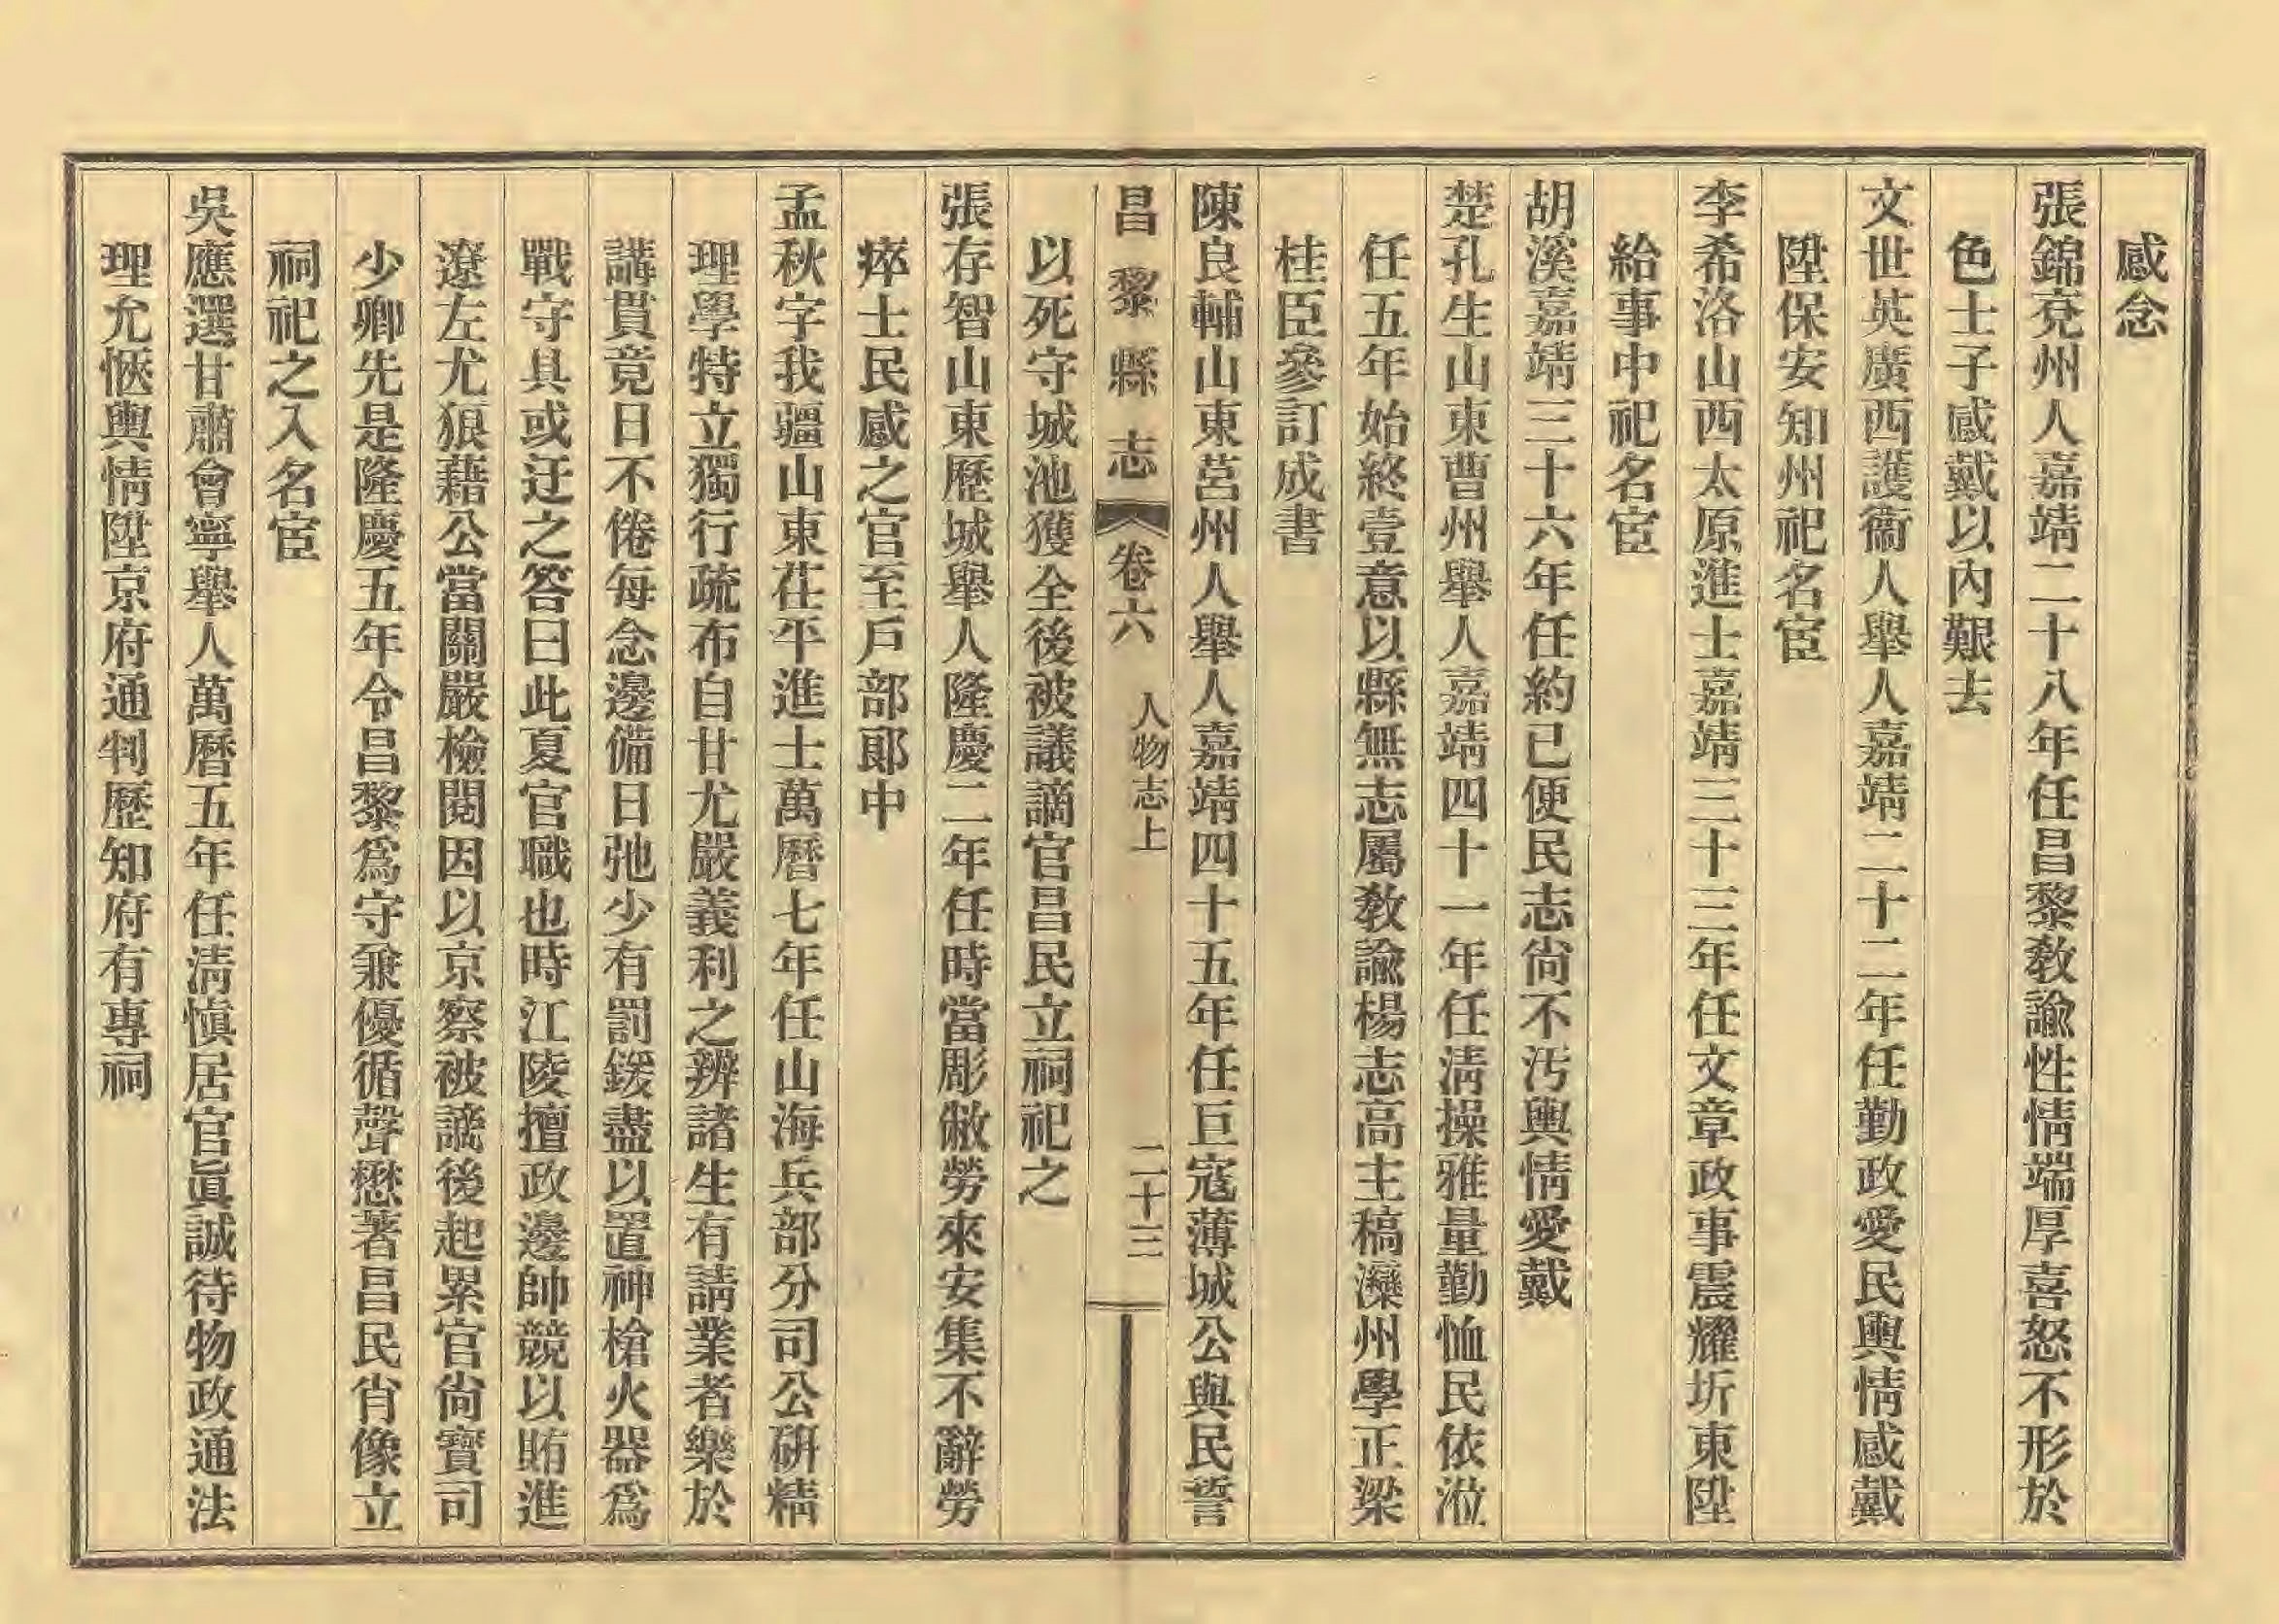 感念
張錦兗州人嘉靖二十八年任昌黎敎諭性情端厚喜怒不形於
色士子感戴以內艱去
文世英廣西護衞人舉人嘉靖二十二年任勤政愛民輿情感戴
陞保安知州祀名宦
李希洛山西太原進士嘉靖三十三年任文章政事震耀圻東陞
給事中祀名宦
胡溪嘉靖三十六年任約已便民志尙不汚輿情愛戴
楚孔生山東曹州舉人嘉靖四十一年任淸操雅量勤恤民依涖
任五年始終壹意以縣無志屬敎諭楊志高主稿灤州學正梁
桂臣參訂成書
陳良輔山東莒州人舉人嘉靖四十五年任巨寇薄城公與民誓
昌黎縣志 卷六 人物志上 二十三
以死守城池獲全後被議謫官昌民立祠祀之
張存智山東歷城舉人隆慶二年任時當彫敝勞來安集不辭勞
瘁士民感之官至戶部郞中
孟秋字我疆山東茌平進士萬曆七年任山海兵部分司公硏精
理學特立獨行疏布自甘尤嚴義利之辨諸生有請業者樂於
講貫竟日不倦每念邊備日弛少有罰鍰盡以置神槍火器爲
戰守具或迂之答曰此夏官職也時江陵擅政邊帥競以賄進
遼左尤狼藉公當關嚴檢閱因以京察被謫後起累官尙寶司
少卿先是隆慶五年令昌黎爲守兼優循聲懋著昌民肖像立
祠祀之入名宦
吳應選甘肅會寧舉人萬曆五年任淸愼居官眞誠待物政通法
理允愜輿情陞京府通判歷知府有專祠